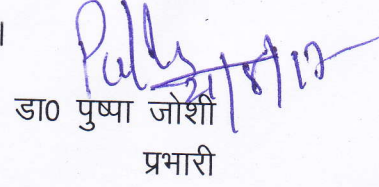 ।
21/8/17
डा0 पुष्पा जोशी
प्रभारी